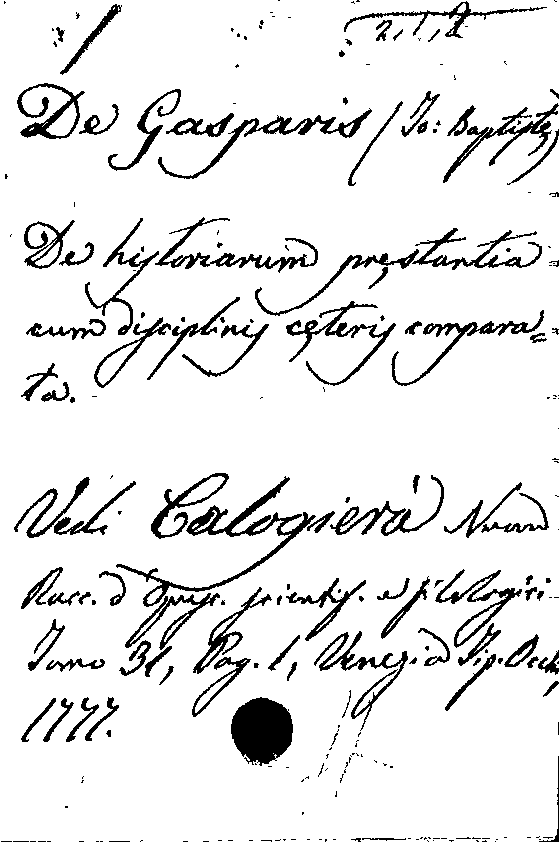 De Gasparis (Jo: Baptistę)
De historiarum pręstantia
cum disciplinis cęteris compara=
ta.
Vedi Calogierá Nuova
Racc. d'Opusc. scientif. e filologici
Tomo 31, Pag. 1, Venezia Tip. Occhi,
1777.